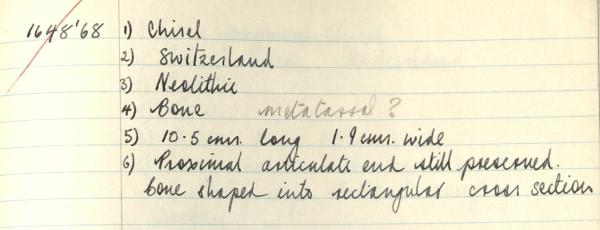 1648'68 1) Chisel
2) Switzerland
3) Neolithic
4) Bone metatarsal?
5) 10.5 cms. long 1.9 cms. wide
6) Proximal articulate end still preserved.
bone shaped into rectangular cross section